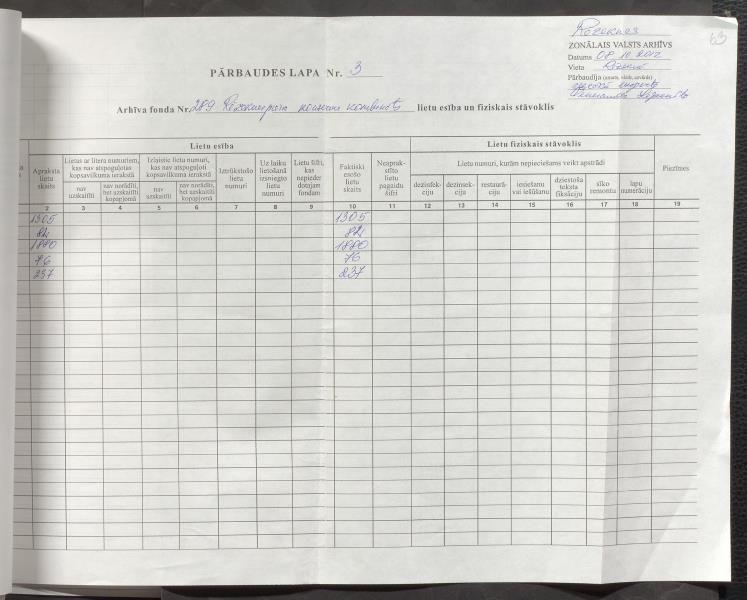 Rēzeknes
63
ZONĀLAIS VALSTS ARHĪVS
Datums 08.10.2012
Vieta Rēzeknē
Pārbaudīja (amats, vārds, uzvārds)
PĀRBAUDES LAPA Nr. 3
Arhīva fonda Nr. 289 lietu esība un fiziskais stāvoklis
Lietu esība
Lietu fiziskais stāvoklis
Piezīmes
Apraksta lietu skaits
Lietas ar litera numuriem, kas nav atspoguļotas kopsavilkuma ierakstā
nav uzskaitīti
nav norādīti, bet uzskaitīti kopapjomā
Izlaistie lietu numuri, kas nav atspoguļoti kopsavilkuma ierakstā
nav uzskaitīti
nav norādīti, bet uzskaitīti kopapjomā
Iztrūkstošo lietu numuri
Uz laiku lietošanā izsniegto lietu numuri
Lietu šifri, kas nepieder dotajam fondam
Faktiski esošo lietu skaits
Neaprakstīto lietu pagaidu šifri
Lietu numuri, kurām nepieciešams veikt apstrādi
dezinfekciju
dezinsekciju
restaurāciju
iesiešanu vai iešūšanu
dziestoša teksta fiksāciju
sīko remontu
lapu numerāciju
2 3 4 5 6 7 8 9 10 11 12 13 14 15 16 17 18 19
1305 1305
82 82
1880 1880
76 76
237 237